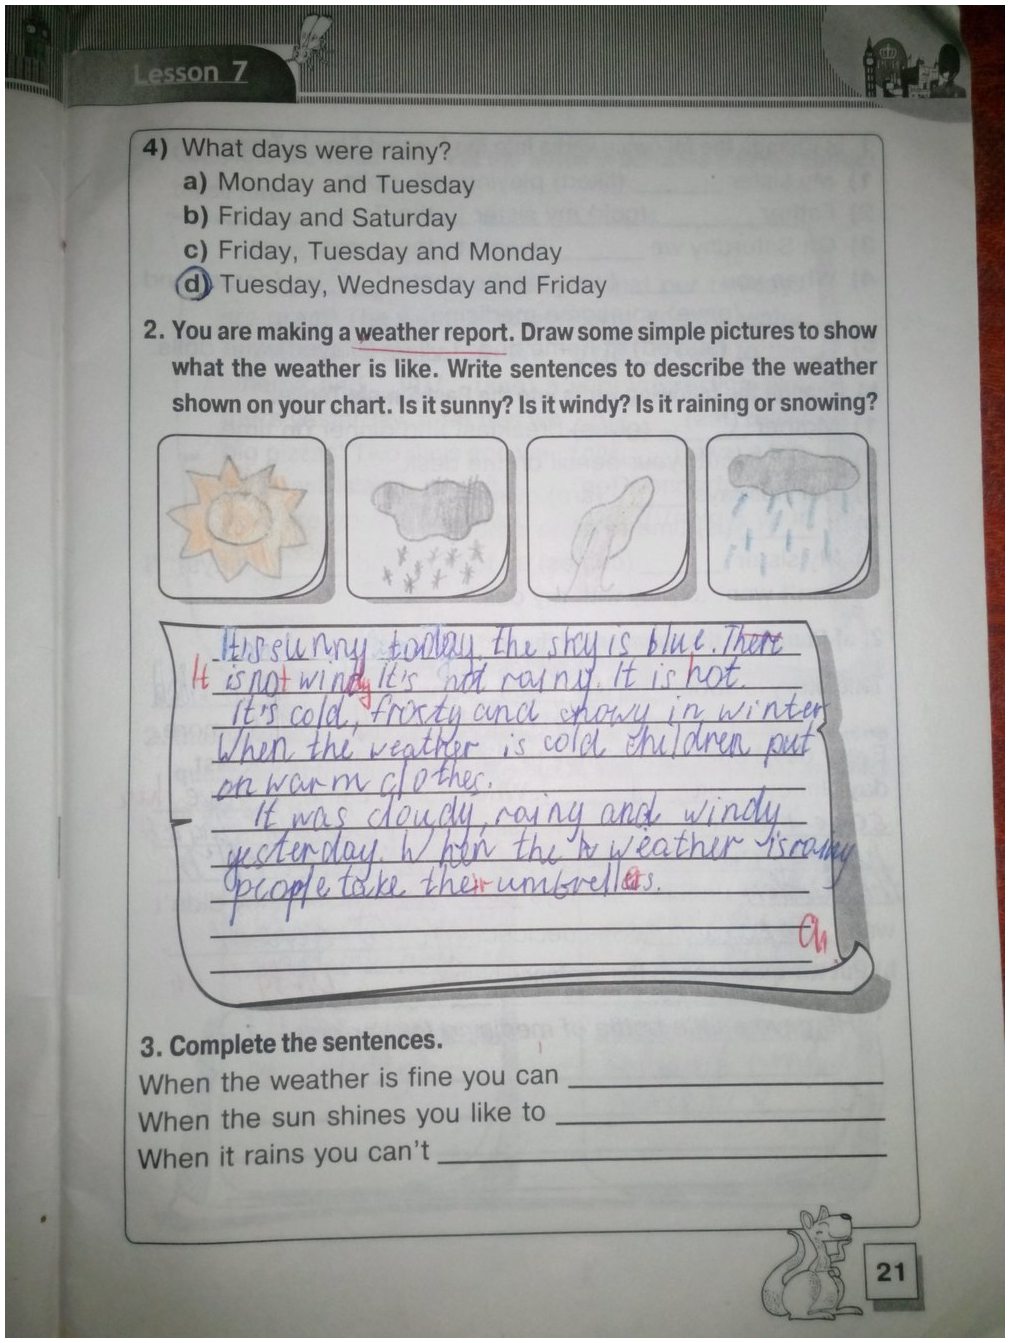 Lesson 7
4) What days were rainy?
a) Monday and Tuesday
b) Friday and Saturday
c) Friday, Tuesday and Monday
d) Tuesday, Wednesday and Friday
2. You are making a weather report. Draw some simple pictures to show
what the weather is like. Write sentences to describe the weather
shown on your chart. Is it sunny? Is it windy? Is it raining or snowing?
It's sunny today. The sky is blue. There
It is not windy. It's not rainy. It is hot.
It's cold, frosty and snowy in winter
When the weather is cold children put
on warm clothes.
It was cloudy, rainy and windy
yesterday. When the weather is rainy
people take their umbrellas.
3. Complete the sentences.
When the weather is fine you can
When the sun shines you like to
When it rains you can't
21